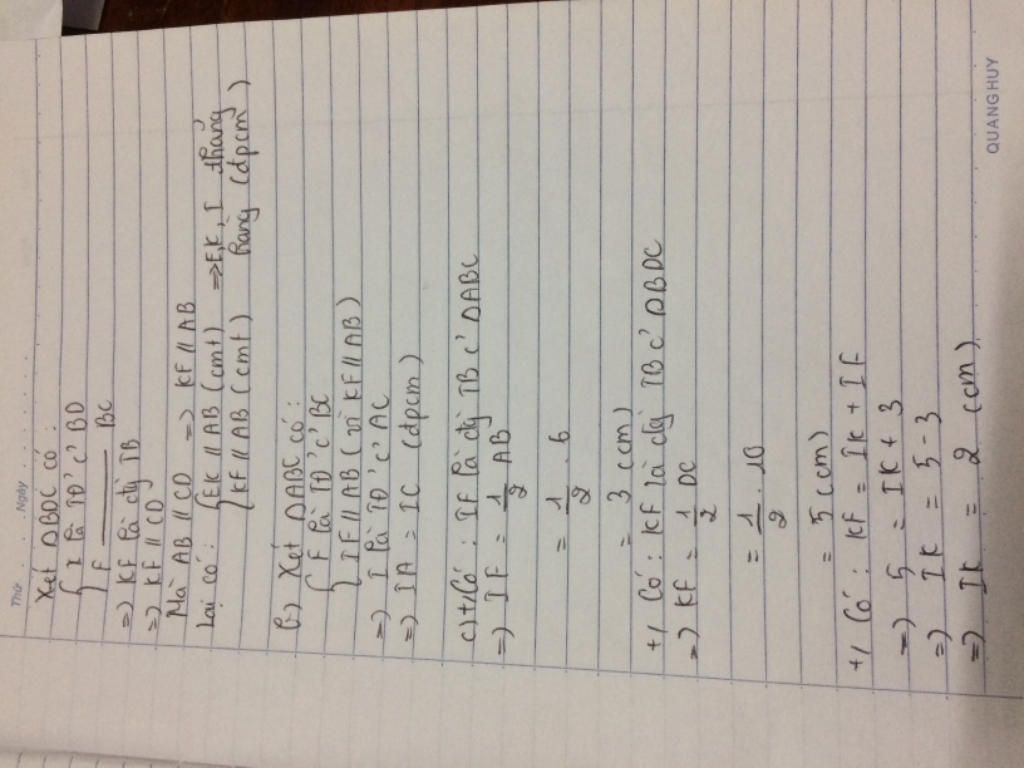 Thứ . . . . . Ngày . . . . .
Xét ΔBDC có :
{ I là TĐ' c' BD
{ F ——— BC
=) KF là đg TB
=) KF // CD
Mà AB // CD => KF // AB
Lại có : { EK // AB (cmt) => E, K, I thẳng
{ KF // AB (cmt) hàng (đpcm)
b) Xét ΔABC có :
{ F là TĐ' c' BC
{ IF // AB (vì KF // AB)
=) I là TĐ' c' AC
=) IA = IC (đpcm)
c) +) Có : IF là đg TB c' ΔABC
=) IF = 1/2 AB
= 1/2 . 6
= 3 (cm)
+) Có : KF là đg TB c' ΔBDC
=) KF = 1/2 DC
= 1/2 . 10
= 5 (cm)
+) Có : KF = IK + IF
=) 5 = IK + 3
=) IK = 5 - 3
=) IK = 2 (cm)
QUANG HUY